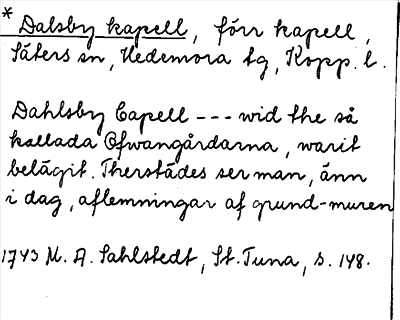 * Dalsby kapell, förr kapell,
Säters sn, Hedemora tg, Kopp. l.
Dahlsby Capell --- wid the så
kallada Ofwangårdarna, warit
belägit. Therstädes ser man, änn
i dag, aflemningar af grund-muren
1743 M. A. Sahlstedt, St. Tuna, s. 148.